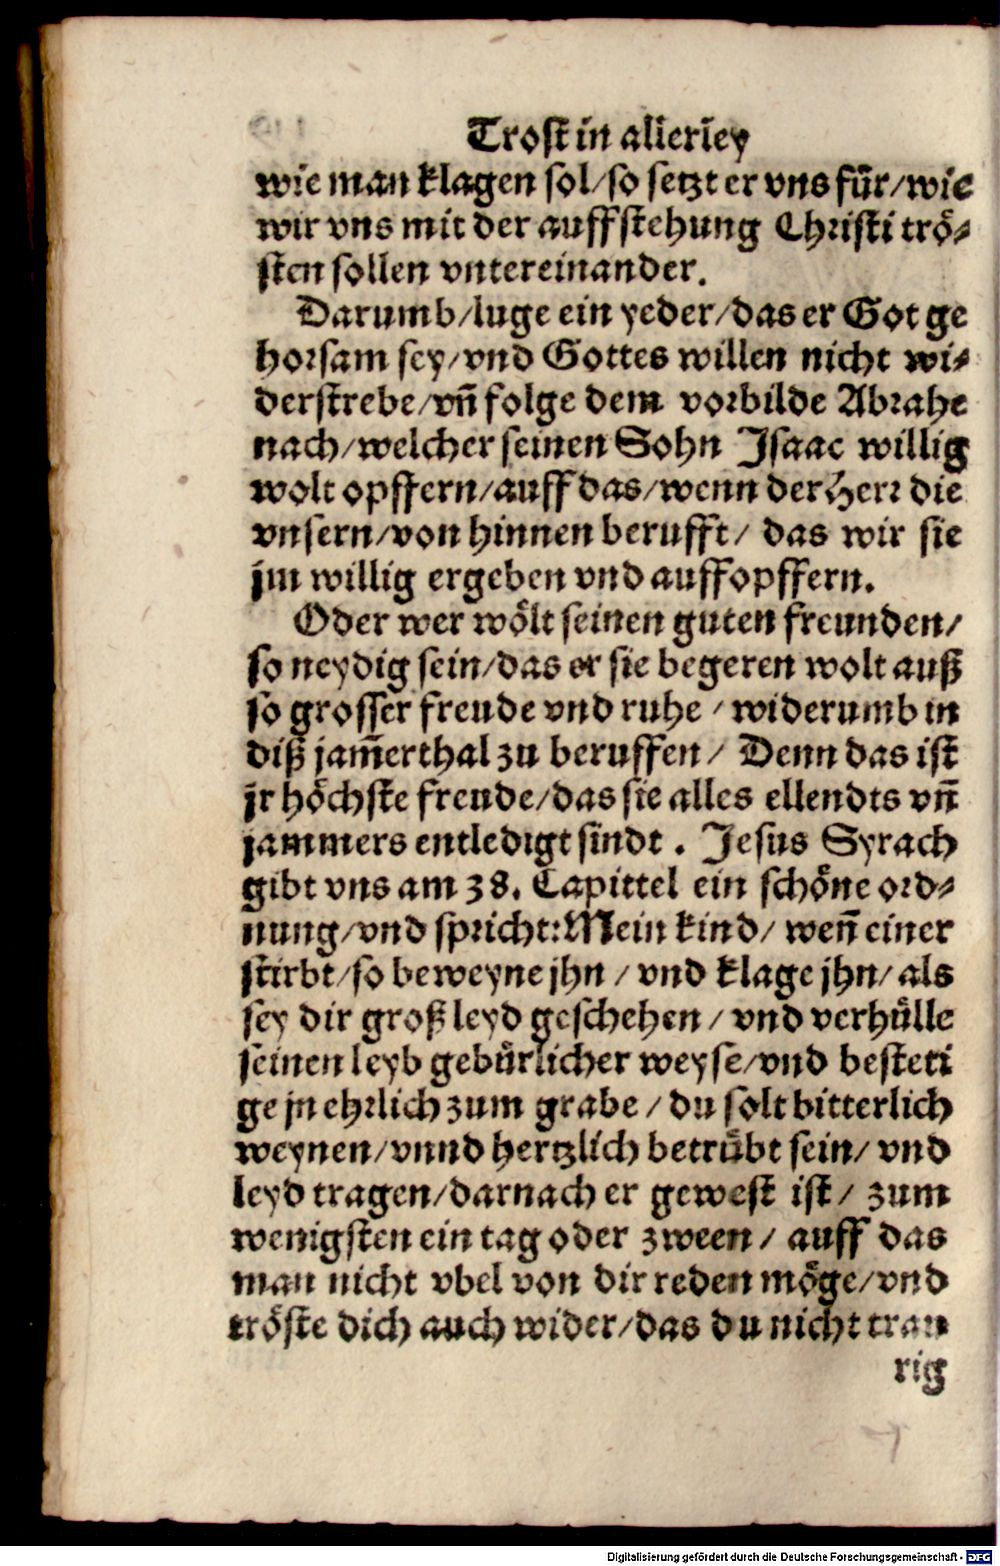 Trost in allerley
wie man klagen sol/so setzt er vns für/wie
wir vns mit der auffstehung Christi trö⸗
sten sollen vntereinander.
Darumb/luge ein yeder/das er Got ge
horsam sey/vnd Gottes willen nicht wi⸗
derstrebe/vñ folge dem vorbilde Abrahe
nach/welcher seinen Sohn Isaac willig
wolt opffern/auff das/wenn der Herr die
vnsern/von hinnen berufft/ das wir sie
jm willig ergeben vnd auffopffern.
Oder wer wölt seinen guten freunden/
so neydig sein/das er sie begeren wolt auß
so grosser freude vnd ruhe / widerumb in
diß jam̃erthal zu beruffen/ Denn das ist
jr höchste freude/das sie alles ellendts vñ
jammers entledigt sindt . Jesus Syrach
gibt vns am 38. Capittel ein schöne ord⸗
nung/vnd spricht: Mein kind/ wen̄ einer
stirbt/so beweyne jhn / vnd klage jhn/ als
sey dir groß leyd geschehen / vnd verhülle
seinen leyb gebürlicher weyse/vnd besteti
ge jn ehrlich zum grabe / du solt bitterlich
weynen/vnnd hertzlich betrübt sein/ vnd
leyd tragen/darnach er gewest ist/ zum
wenigsten ein tag oder zween / auff das
man nicht vbel von dir reden möge/vnd
tröste dich auch wider/das du nicht trau
rig
Digitalisierung gefördert durch die Deutsche Forschungsgemeinschaft - DFG